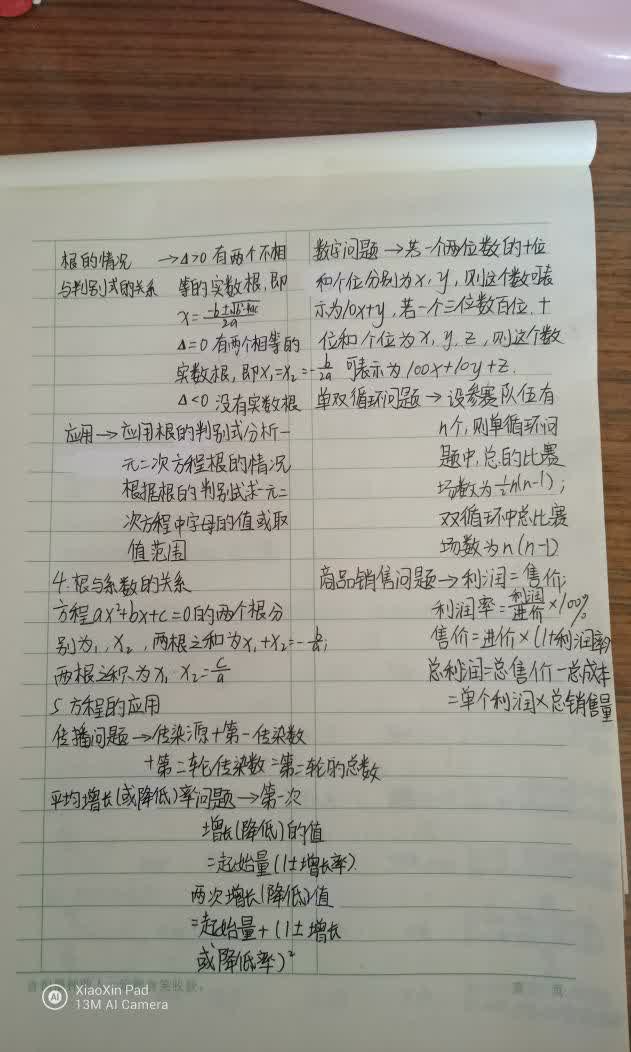 根的情况 →Δ>0 有两个不相
与判别式的关系 等的实数根,即
x=\frac{-b±\sqrt{b²-4ac}}{2a}
Δ=0 有两个相等的
实数根,即x₁=x₂=-\frac{b}{2a}
Δ<0 没有实数根
应用→应用根的判别式分析一
元二次方程根的情况
根据根的判别式求一元二
次方程中字母的值或取
值范围
4.根与系数的关系
方程ax²+bx+c=0的两个根分
别为x₁, x₂, 两根之和为x₁+x₂=-\frac{b}{a};
两根之积为x₁ x₂=\frac{c}{a}
5 方程的应用
传播问题→传染源+第一传染数
+第二轮传染数=第二轮的总数
平均增长(或降低)率问题→第一次
增长(降低)的值
=起始量(1±增长率)
两次增长(降低)值
=起始量+(1±增长
或降低率)²
数字问题→若一个两位数的十位
和个位分别为x,y,则这个数可表
示为10x+y,若一个三位数百位.十
位和个位为x,y,z,则这个数
可表示为100x+10y+z.
单双循环问题→设参赛队伍有
n个,则单循环问
题中,总的比赛
场数为\frac{1}{2}n(n-1);
双循环中总比赛
场数为n(n-1)
商品销售问题→利润=售价;
利润率=\frac{利润}{进价}×100%
售价=进价×(1+利润率)
总利润=总售价-总成本
=单个利润×总销售量
XiaoXin Pad
13M AI Camera